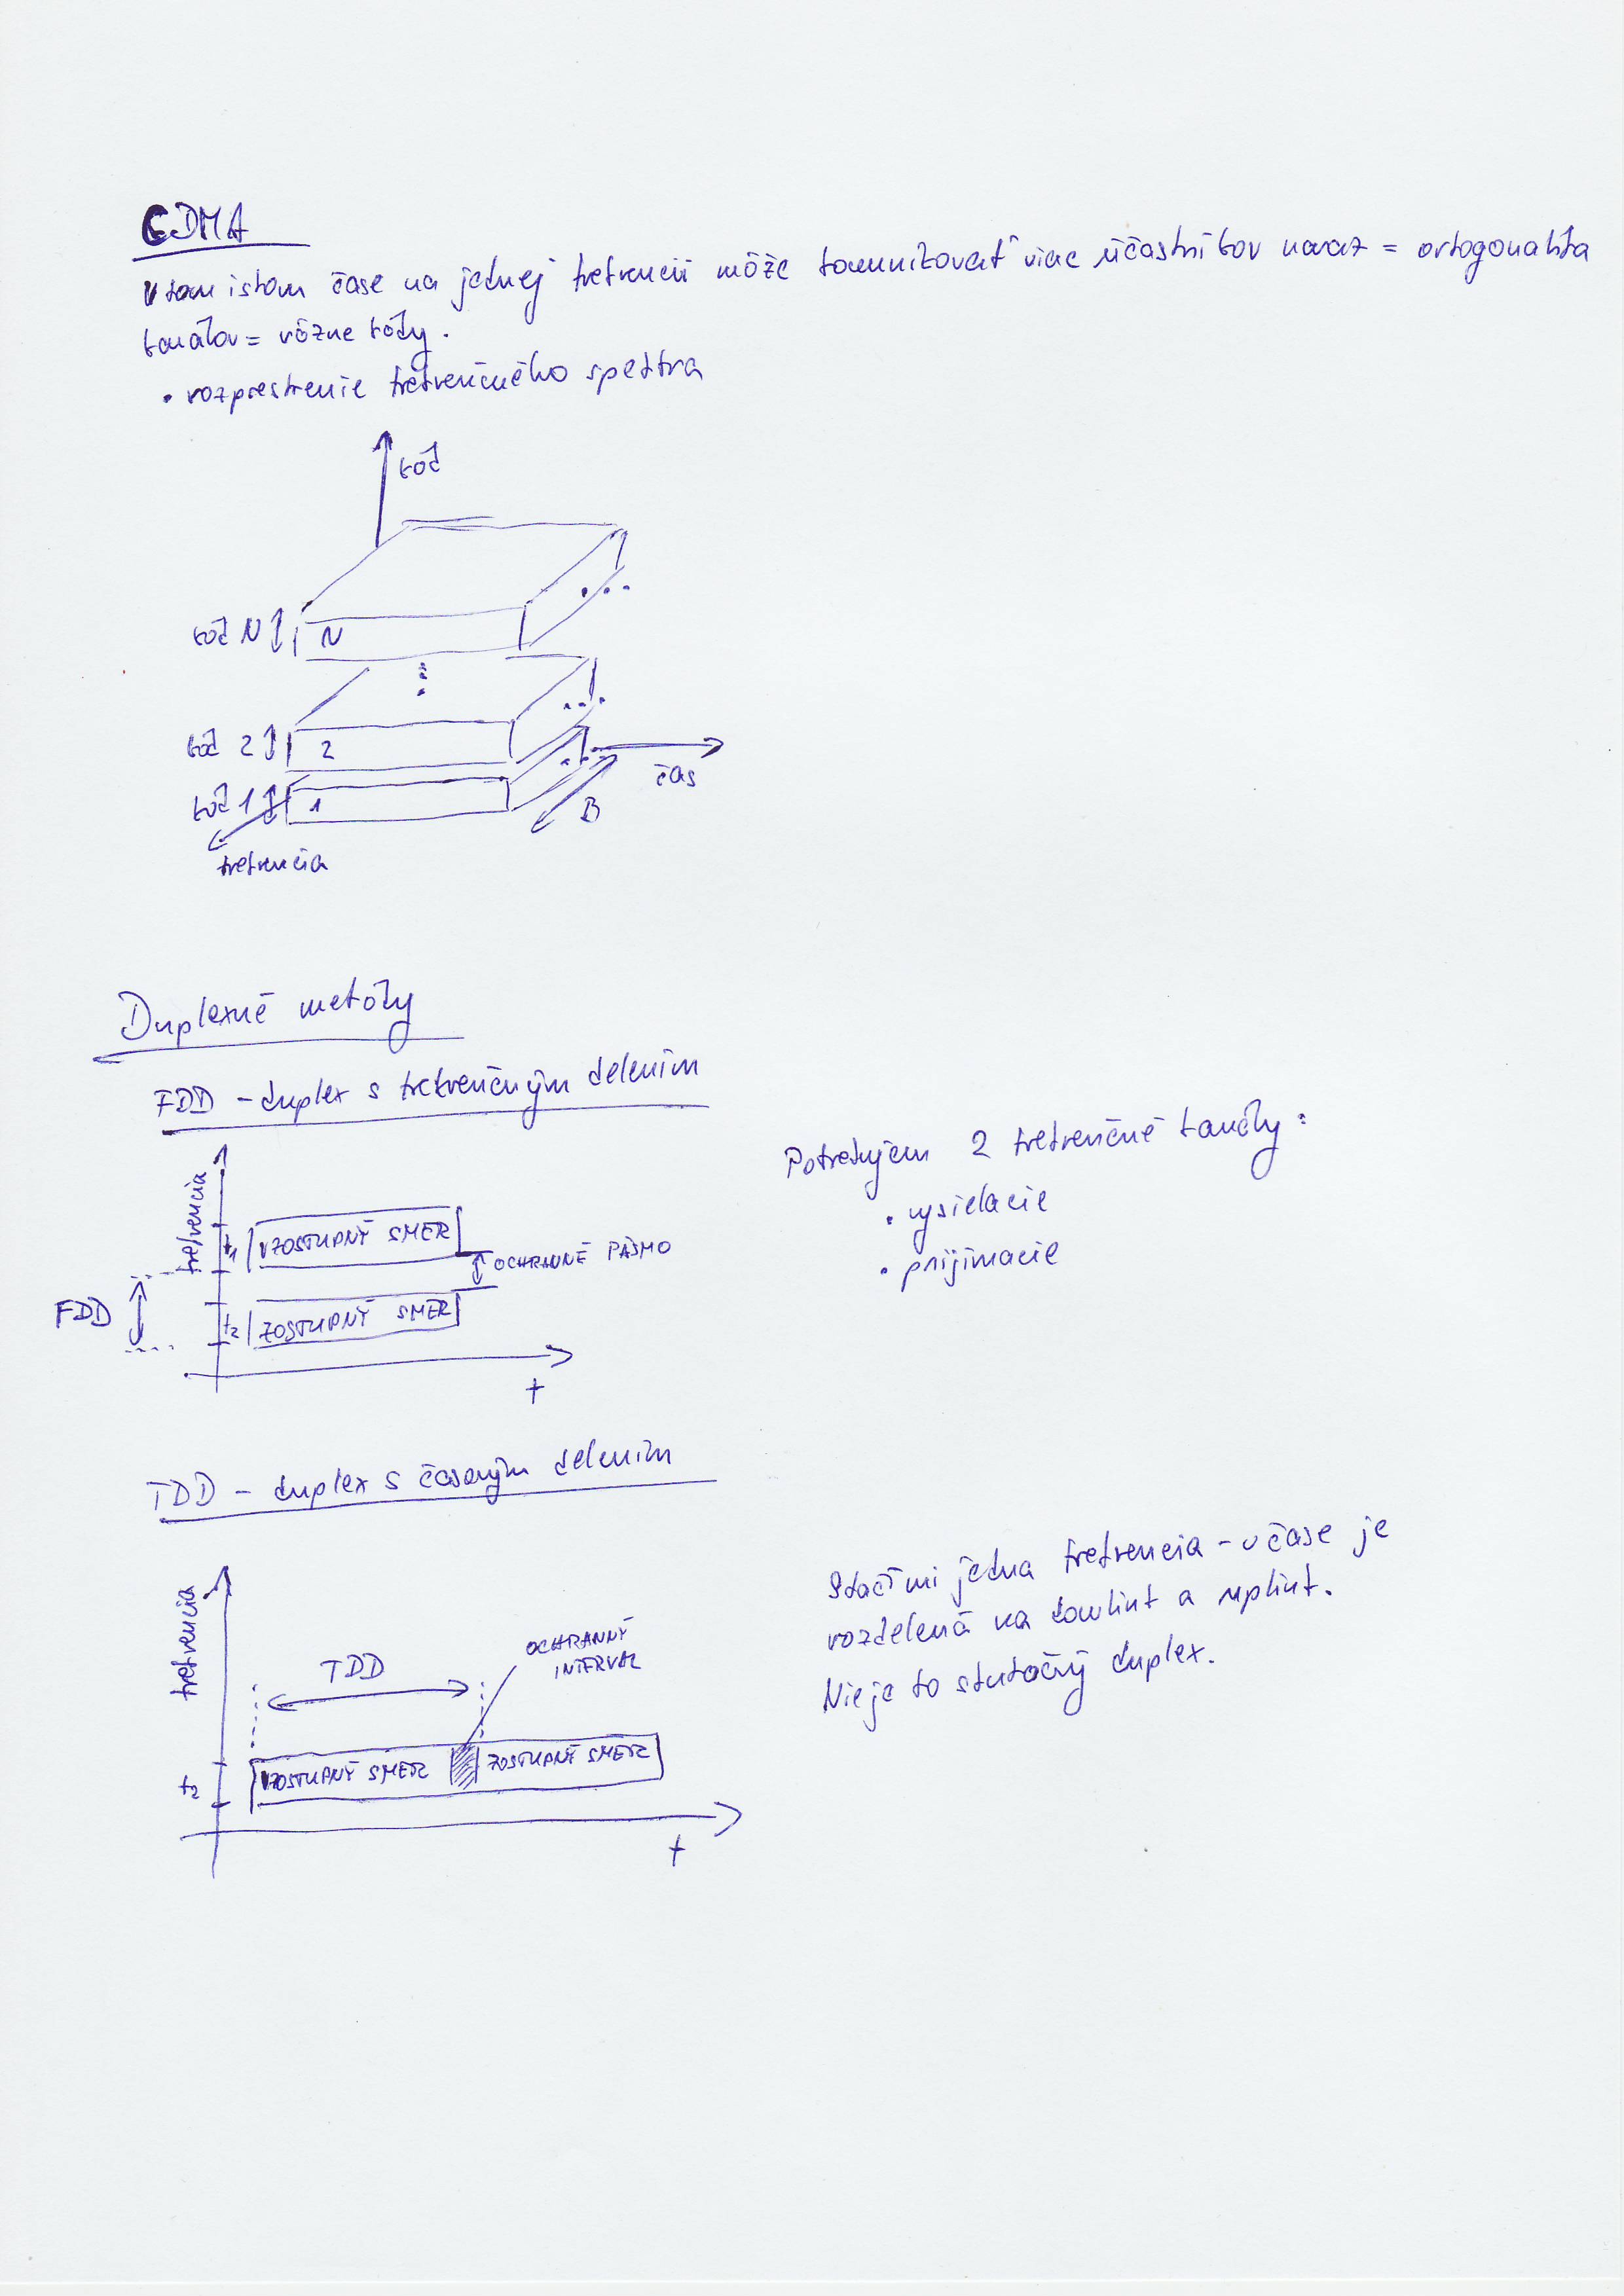 CDMA
V tom istom čase na jednej frekvencii môže komunikovať viac účastníkov naraz = ortogonalita
kanálov = rôzne kódy.
• rozprestrenie frekvenčného spektra
kód
kód N N
kód 2 2
kód 1 1
čas
B
frekvencia
Duplexné metódy
FDD - duplex s frekvenčným delením
frekvencia
f1 VZOSTUPNÝ SMER
OCHRANNÉ PÁSMO
FDD
f2 ZOSTUPNÝ SMER
t
Potrebujem 2 frekvenčné kanály:
• vysielacie
• prijímacie
TDD - duplex s časovým delením
frekvencia
TDD
OCHRANNÝ
INTERVAL
VZOSTUPNÝ SMER ZOSTUPNÝ SMER
t
Stačí mi jedna frekvencia - v čase je
rozdelená na downlink a uplink.
Nie je to skutočný duplex.